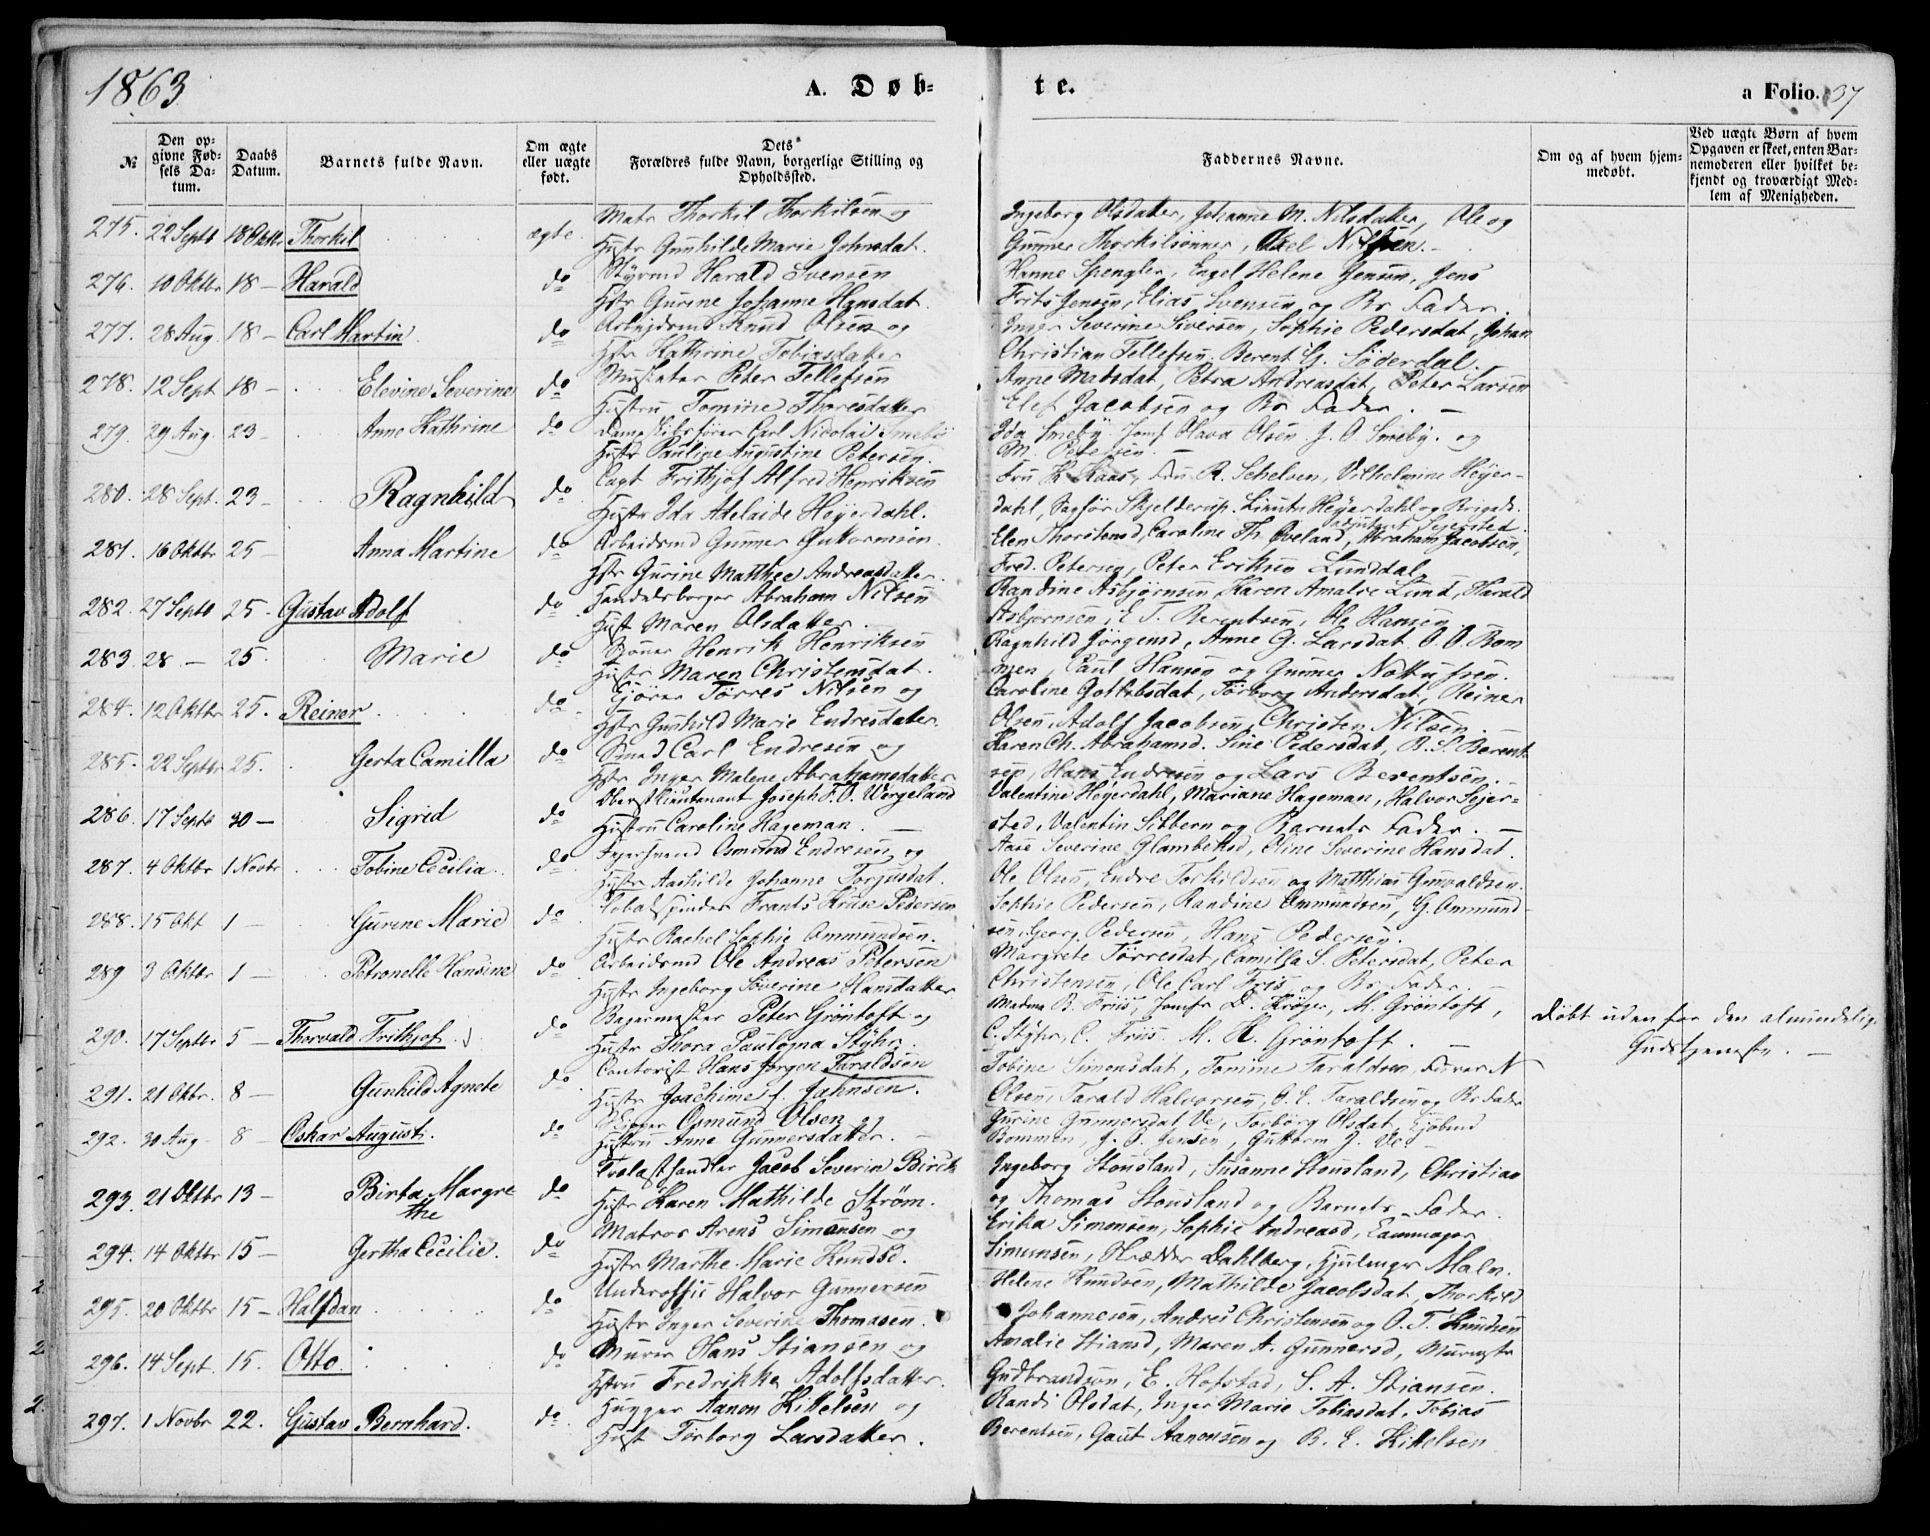 1863
A. Døb-
te.
a Folio. 37
№
Den op-
givne Fød-
sels Da-
tum.
Daabs
Datum.
Barnets fulde Navn.
Om ægte
eller uægte
født.
Dets
Forældres fulde Navn, borgerlige Stilling og
Opholdssted.
Faddernes Navne.
Om og af hvem hjem-
medøbt.
Ved uægte Børn af hvem
Opgaven er skeet, enten Bar-
nemoderen eller hvilket be-
kjendt og troværdigt Med-
lem af Menigheden.
275. 22 Septb 18 Oktbr. Thorkil ægte Matr Thorkil Thorkilsen og
Hustr Gunhilde Marie Johnsdat.
Ingeborg Olsdatter, Johanne M. Nilsdatter, Ole og
Gunner Thorkilsønner, Axel Nilsen.
276. 10 Oktbr 18 – Harald do Styrmd Harald Svensen
Hstr Gurine Johanne Hansdat.
Hanne Spengler, Engel Helene Jensen, Jens
Frits Jensen, Elias Svensen og Br Fader.
277. 28 Aug. 18 – Carl Martin do Arbeidsmd Knud Olsen og
Hstr Kathrine Tobiasdatter
Inger Severine Siversen, Sophie Pedersdat, Johan
Christian Tellefsen, Berent G. Söderdal.
278. 12 Sept 18 – Elevine Severine do Peter Tellefsen
Hustru Tomine Thoresdatter
Anne Madsdat, Petra Andreasdat, Peter Larsen
Elef Jacobsen og Br Fader. –
279. 29 Aug. 23 – Anne Kathrine do Dampskibsfører Carl Nicolai Smeby
Hustr Pauline Augustine Petersen.
Ida Smeby, Jomf Olava Olsen, J. O. Smeby. og
M. Petersen.
280. 28 Sept. 23 – Ragnhild do Capt Frithjof Alfred Henriksen
Hustr Ida Adelaide Heyerdahl.
Fru K Kaas, Fru R. Schelven, Vilhelmine Heyer-
dahl, Sagför Skjelderup, Lieutn Heyerdahl og Brigade-
adjutant Sejersted.
281. 16 Oktbr 25 – Anna Martine do Arbeidsmd Gunner Guttormsen
Hstr Gurine Matthea Andreasdatter.
Elen Thorstensd, Caroline Th. Øveland, Abraham Jacobsen,
Fred. Petersen, Peter Eriksen Lunddal
282. 27 Septb 25 – Gustav Adolf do. Handelsborger Abraham Nilsen
Hust Maren Olsdatter.
Randine Asbjørnsen, Karen Amalie Lund, Harald
Asbjørnsen, E T. Berentsen, Ole Hansen
283. 28 – 25. Marie do Henrik Henriksen
Hustr Maren Christensdat.
Ragnhild Jørgensd, Anne G. Larsdat O. O. Bom
men, Paul Hansen og Gunner
284. 12 Oktbr 25. Reiner do. Tørres Nilsen og
Hstr Gunhild Marie Endresdatter.
Caroline Gotlebsdat, Torborg Andersdat, Reiner
Olsen, Adolf Jacobsen, Christen Nilsen.
285. 22 Septbr 25. Gerta Camilla do Smed Carl Endresen og
Hstr Inger Malene Abrahamsdatter
Karen Ch. Abrahamsd. Sine Pedersdat, B. S. Berent
sen, Hans Endresen og Lars Berentsen.
286. 17 Septb 30 – Sigrid do Oberstlieutenant Joseph F. O. Wergeland
Hustru Caroline Hageman. –
Valentine Heyerdahl, Mariane Hageman, Halvor Sejer-
sted, Valentin Sibbern og Barnets Fader. –
287. 4 Oktbr 1 Novbr Tobine Cecilia. do Osmund Endresen og
Hustr Aashilde Johanne Torjusdat.
Aase Severine Glambeksd, Eline Severine Hansdat.
Ole Olsen, Endre Torkildsen og Matthias Gunvaldsen.
288. 15 Okt 1 – Gurine Marie do Tobakspinder Frants Kruse Pedersen
Hustr Rachel Sophie Ommundsen.
Sophie Pedersen, Randine Ommundsen, G. Ommund
sen, Georg Pedersen, Hans Pedersen.
289 3 Oktbr 1 – Petronelle Hansine do Arbeidsmd Ole Andreas Petersen
Hustr Ingeborg Severine Hansdatter
Margrete Tørresdat, Camilla S. Petersdat, Peter
Christensen, Ole Carl Friis og Br Fader. –
290. 17 Septbr 5 – Thorvald Frithjof. do Bagermester Peter Gröntoft og
Hustr Thora Paulogna Stÿhr.
Madme B. Friis, Jomfr D. Krøger, M. Gröntoft,
C. Stÿhr, C. Friis. M. H. Gröntoft. –
Døbt udenfor den almindelig
Gudstjeneste. –
291. 21 Oktbr. 8 – Gunhild Agnete do Cantorist Hans Jørgen Taraldsen
Hustr Joachime f. Jahnsen.
Tobine Simonsdat, Tomine Taraldsen, N
Olsen, Tarald Halvorsen, O. E. Taraldsen og Br Fader
292. 30 Aug 8 – Oskar August. do Skipper Osmund Olsen og
Hustru Anne Gunnersdatter. –
Gurine Gunnersdat Ve, Torborg Olsdat, Ejebind
Bommen, J. S. Jensen, Guttorm J. Ve.
293. 21 Oktbr 13 – Birta Margre
the do Trælasthandler Jacob Severin Birch
Hustr Karen Mathilde Strøm.
Ingeborg Stousland, Susanne Stousland, Christian
og Thomas Stousland og Barnets Fader.
294. 14 Oktbr 15 – Gertha Cecilie. do Matros Arens Simonsen og
Hustr Marthe Marie Knudsd.
Erika Simonsen, Sophie Andreasd, Lammager
Simonsen, Skrædder Dahlberg, Hjulmager Malm.
295. 20 Oktbr 15 – Halfdan do Underoffic Halvor Gunnersen
Hustr Inger Severine Thomasen.
Helene Knudsen, Mathilde Jacobsdat, Thorkild
Johannesen, Andres Christensen og O. T. Knudsen
296. 14 Sept. 15. Otto. do Murer Hans Stiansen og
Hstru Fredrikke Adolfsdatter.
Amalie Stiansd, Maren A. Gunnersd, Murmstr
Gudbrandsen, E. Hofstad, S. A. Stiansen.
297. 1 Novbr 22. Gustav Bernhard. do Hugger Aanon Kittelsen og
Hust Torborg Larsdatter.
Randi Olsdat, Inger Marie Tobiasdat, Tobias
Berentsen, Gaut Aanonsen og B. E. Kittelsen